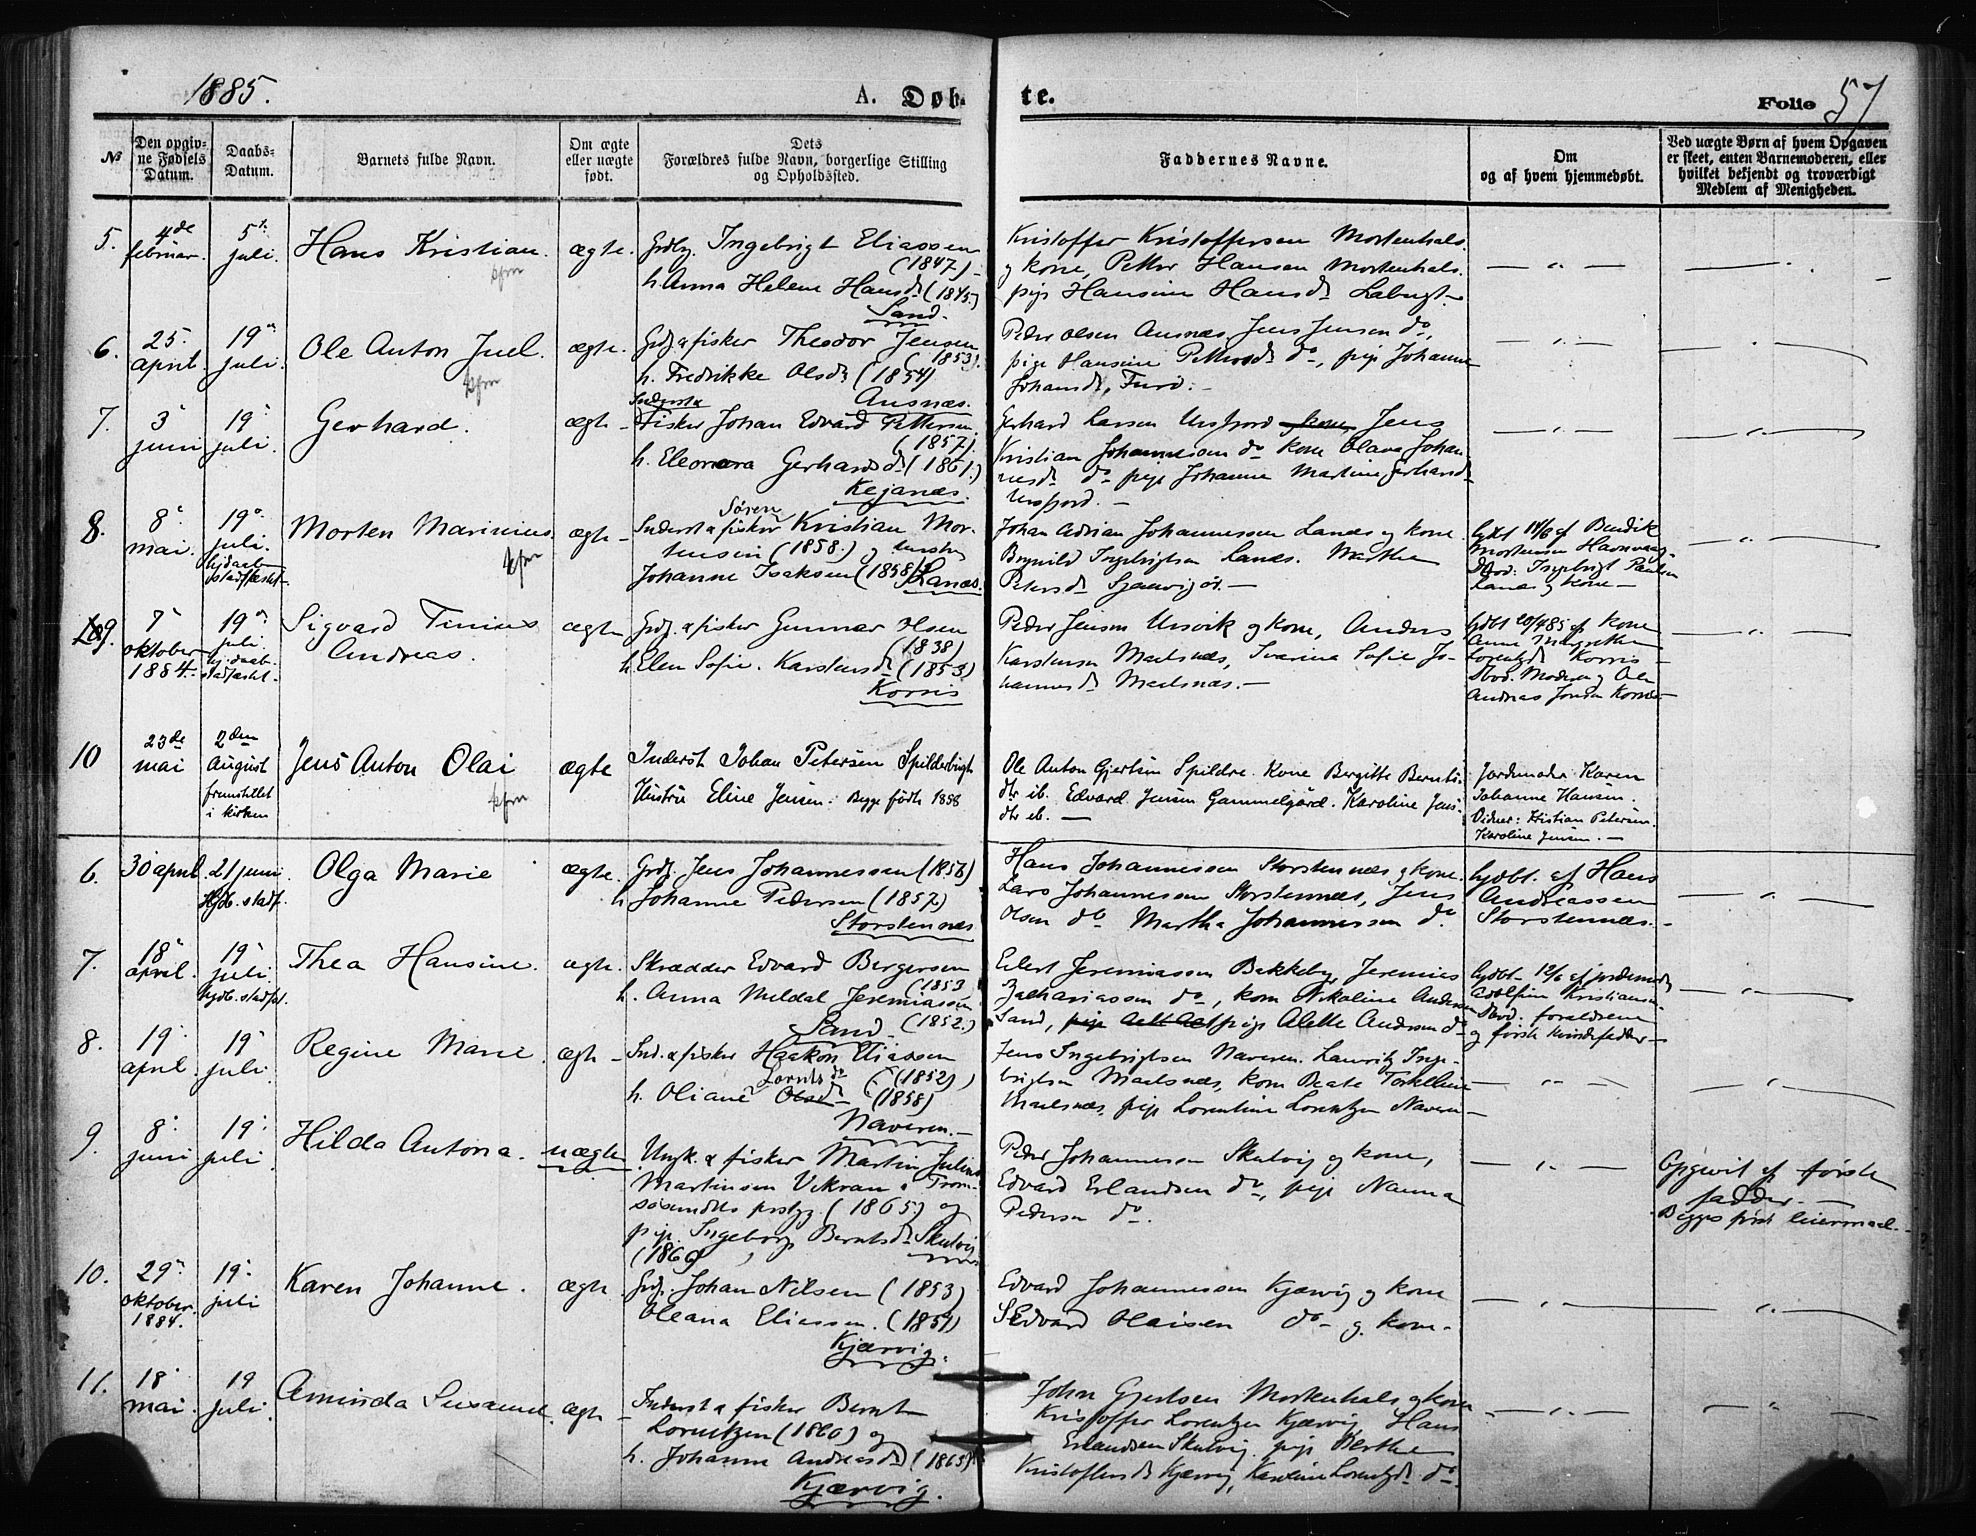 1885.
A. Døb-
te.
Folie 57
№
Den opgiv-
ne Fødsels
Datum.
Daabs-
Datum.
Barnets fulde Navn.
Om ægte
eller uægte
født.
Dets
Forældres fulde Navn, borgerlige Stilling
og Opholdssted.
Faddernes Navne.
Om
og af hvem hjemmedøbt.
Ved uægte Børn af hvem Opgaven
er skeet, enten Barnemoderen, eller
hvilket bekjendt og troværdigt
Medlem af Menigheden.
5.
4de
februar.
5te
juli.
Hans Kristian.
ægte.
Ingebrigt Eliassen
(1847) -
h. Anna Helene Hansd. (1845.)
Sand.
Kristoffer Kristoffersen Mortenhals.
g kone, Petter Hansen Mortenhals.
pige Hansine Hansd.
6.
25.
april.
19.
juli.
Ole Anton Juel.
ægte.
Grdf. & fisker Theodor Jensen
(1853).
h. Fredrikke Olsd. (1854)
Ausnæs.
Peder Olsen Ausnæs, Jens Jensen do,
pige Hansine do, pige Johanne
7.
3.
juni
19.
juli.
Gerhard.
ægte -
Inderst &
Fisker Johan Edvard Pettersen.
(1857.)
h. Eleonora Gerhardsd. (1861.)
Kejanæs.
Gerhard Larsen Ursfjord g kone, Jens
Kristian Johannessen do kone Olava Johan-
nesd. do pige Johanne Martine Gerhardsd
Ursfjord. -
8.
8.
mai.
19.
juli.
hjdaab
stadfæstet.
Morten Marinius
ægte -
Inderst & fisker Søren Kristian Mor-
tensen (1858.) g hustru
Johanne Isaksen (1858) Lanæs.
Johan Adrian Johannessen Lanæs g kone.
Brynild Ingebrigtsen Lanæs. Marthe
Petersd.
hjdbt af Bendik
Mortensen
Ingebrigt Paulsen
Lanæs g kone -
9.
7.
oktober
1884.
19.
juli.
hj. daab
stadfæstet.
Sigvard Tinius
Andreas.
ægte
Grdf. & fisker Gunnar Olsen
(1838)
h. Elen Sofie Karstensd. (1853.)
Korris
Peder Jensen Ursvik g kone, Anders
Karstensen Maelsnæs, Sofie Jo-
hannesd. Maelsnæs. -
hjdbt af kone
Anne Margrethe
Lorentzd. Korris -
Moderen g Ole
Andreas
10
23de
mai
2den
August
fremstillet
i kirken
Jens Anton Olai
ægte
Inderst Johan Petersen Spilderbugt
Hustru Eline Jensen. Begge født 1858
Ole Anton Gjertsen Spildre. Kone Bergitte Bernts-
dtr ib. Edvard Jensen Gammelgård. Karoline Jens-
dtr eb. -
Jordmoder Karen
Johanne Hansen.
Vidner: Kristian Petersen.
Karoline Jensen. -
6.
30 april
21 juni
Hjdb. stadf.
Olga Marie
ægte.
Grdf. Jens Johannessen (1856)
h Johanne Pedersen (1857.)
Storstennæs
Hans Johannessen Storstennæs g kone.
Lars Johannessen Storstennæs, Jens
Olsen do Martha Johannessen do
hjdbt. af Hans
Andreassen
Storstennæs. -
7.
18.
april.
19.
juli
hjdb. stadfst.
Thea Hansine.
ægte.
Skrædder Edvard Bergersen
(1853
h. Anna Meldal Jeremiassen
Sand. (1852.)
Eilert Jeremiassen Bakkeby, Jeremias
Zachariassen do, kone Nikoline Andersen
Sand, pige Alette Andersen do
hjdbt - 12/6 af jordemoder
Adolfine Kristiansen
forældrene
g første kvindefadder -
8.
19.
april.
19.
juli.
Regine Marie.
ægte -
Ind. & fisker Haakon Eliassen
(1852)
h. Oliane Lorntsd. Olsd. (1858)
Naveren. -
Jens Ingebrigtsen Naveren. Lauritz Inge-
brigtsen Maelsnæs, kone Beate
Maelsnæs, pige Lorentine Lorentzen Naveren -
9.
8.
juni
19.
juli.
Hilda Antona.
uægte
Ungk. & fisker Martin Julius
Martinsen Vikran i Trom-
søsundets prstgj. (1865.) og
pige Ingeborg Berntsd. Skulvig
(1866)
Peder Johannessen Skulvig g kone,
Edvard Erlandsen do, pige Nanna
Pedersen do.
Opgivet af første
fadder. -
Begges først leiermaal.
10.
29.
oktober.
1884.
19.
juli
Karen Johanne.
ægte.
Grdf. Johan Nilsen (1853)
Oleana Eliassen. (1857)
Kjærvig.
Edvard Johannessen Kjærvig g kone
Edvard Olaisen do - g. kone -
11.
18.
mai.
19
juli.
Aminda Susanne.
ægte -
Inderst & fisker Bernt
Lorentzen (1860) og
h. Johanne Andreasd. (1865)
Kjærvig.
Johan Gjertsen Mortenhals g kone
Kristoffer Lorentzen Kjærvig Hans
Erlandsen Skulvig. pige Berthe
Kristoffersd. Kjærvig, Karoline Lorentzd. do.